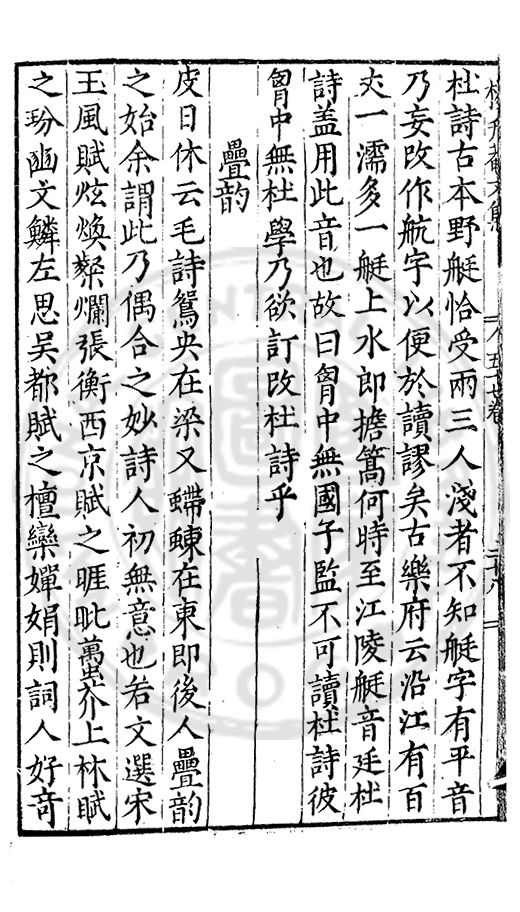 杜詩古本野艇恰受兩三人淺者不知艇字有平音
乃妄改作航字以便於讀謬矣古樂府云沿江有百
丈一濡多一艇上水郎擔篙何時至江陵艇音廷杜
詩盖用此音也故曰胷中無國子監不可讀杜詩彼
胷中無杜學乃欲訂改杜詩乎
疊韵
皮日休云毛詩鴛央在梁又螮蝀在東即後人疊韵
之始余謂此乃偶合之妙詩人初無意也若文選宋
玉風賦炫煥粲爛張衡西京賦之睚眦蠆芥上林賦
之玢豳文鱗左思吳都賦之檀欒嬋娟則詞人好竒
五十七卷
二十八